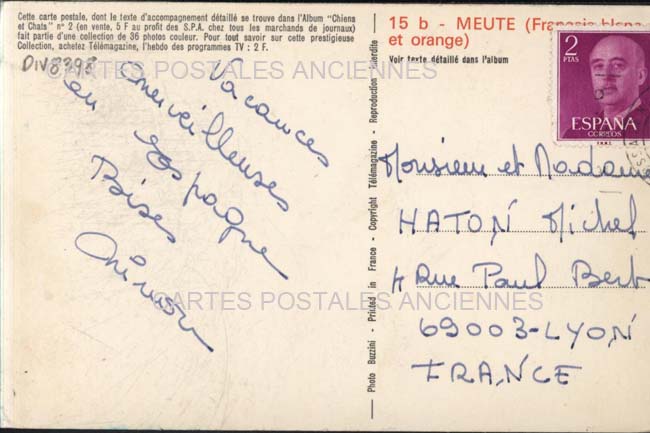 Cette carte postale, dont le texte d'accompagnement détaillé se trouve dans l'Album "Chiens
et Chats" n° 2 (en vente, 5 F au profit des S.P.A. chez tous les marchands de journaux)
fait partie d'une collection de 36 photos couleur. Pour tout savoir sur cette prestigieuse
Collection, achetez Télémagazine, l'hebdo des programmes TV : 2 F.
DIV8398
CARTES POSTALES ANCIENNES
Vacances
merveilleuses
en Espagne
Bises
CARTES POSTALES ANCIENNES
Photo Buzzini - Printed in France - Copyright Télémagazine - Reproduction interdite
15 b - MEUTE (Français blanc
et orange)
Voir texte détaillé dans l'album
2
PTAS
ESPAÑA
CORREOS
Monsieur et Madame
HATON Michel
4 Rue Paul Bert
69003-LYON
FRANCE